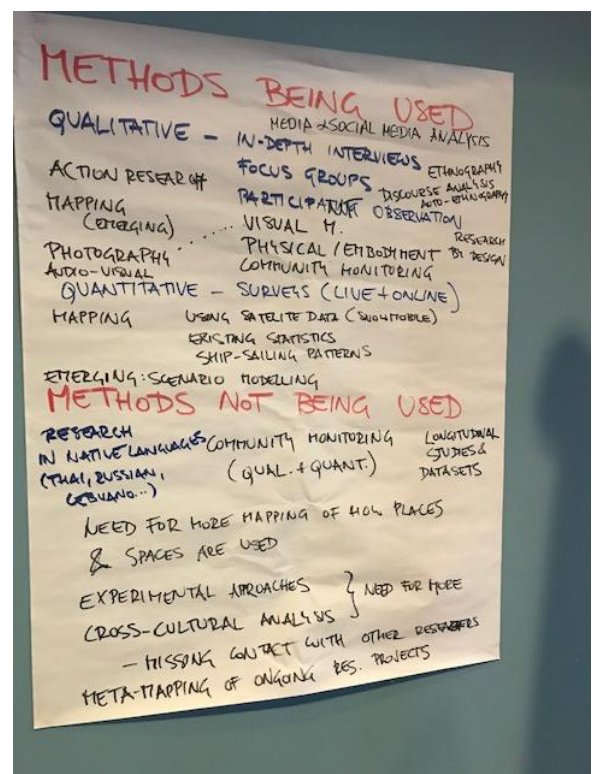 METHODS BEING USED
MEDIA & SOCIAL MEDIA ANALYSIS
QUALITATIVE – IN-DEPTH INTERVIEWS
ETHNOGRAPHY
ACTION RESEARCH
FOCUS GROUPS
DISCOURSE ANALYSIS
AUTO-ETHNOGRAPHY
MAPPING
(EMERGING)
PARTICIPATORY OBSERVATION
..... VISUAL M.
RESEARCH
BY DESIGN
PHOTOGRAPHY
AUDIO-VISUAL
PHYSICAL / EMBODYMENT
COMMUNITY MONITORING
QUANTITATIVE – SURVEYS (LIVE + ONLINE)
MAPPING USING SATELITE DATA (SNOWMOBILE)
EXISTING STATISTICS
SHIP-SAILING PATTERNS
EMERGING: SCENARIO MODELLING
METHODS NOT BEING USED
RESEARCH
IN NATIVE LANGUAGES
(THAI, RUSSIAN,
CEBUANO...)
COMMUNITY MONITORING
(QUAL. + QUANT.)
LONGITUDINAL
STUDIES &
DATASETS
NEED FOR MORE MAPPING OF HOW PLACES
& SPACES ARE USED
EXPERIMENTAL APROACHES } NEED FOR MORE
CROSS-CULTURAL ANALYSIS
– MISSING CONTACT WITH OTHER RESEARCHERS
META-MAPPING OF ONGOING RES. PROJECTS